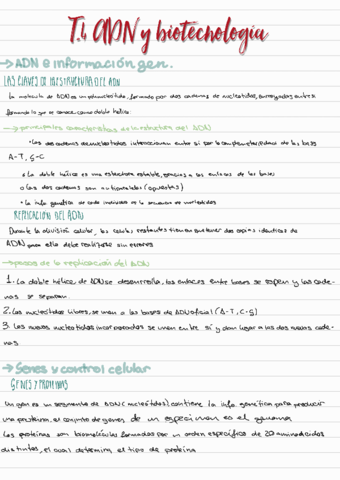 T.4 ADN y biotecnología
→ ADN e información gen.
LAS CLAVES DE LA ESTRUCTURA DEL ADN
La molécula de ADN es un polinucleótido, formado por dos cadenas de nucleótidos, enrrogadas entre sí
formando lo que se conoce como doble hélice.
→ principales características de la estructura del ADN
• Las dos cadenas de nucleótidos interaccionan entre si por la complementariedad de las bases
A-T, G-C
• La doble hélice es una estructura estable, gracias a los enlaces de las bases
• Las dos cadenas son antiparalelas (opuestas)
• La info genética de cada individuo es la secuencia de nucleótidos
REPLICACIÓN DEL ADN
Durante la división celular, las células resultantes tienen que tener dos copias idénticas de
ADN para ello debe realizarse sin errores
→ pasos de la replicación del ADN
1. La doble hélice de ADN se desenrolla, los enlaces entre bases se rompen y las cade-
nas se separan
2. Los nucleótidos libres, se unen a las bases de ADN oficial (A-T, C-G)
3. Los nuevos nucleótidos incorporados se unen entre sí y dan lugar a las dos nuevas cade-
nas
→ Genes y control celular
GENES Y PROTEÍNAS
Un gen es un segmento de ADN (nucleótidos) contiene la info genética para producir
una proteína, el conjunto de genes de un especimen es el genoma
Las proteínas son biomoléculas formadas por un orden específico de 20 aminoácidos
distintos, el cual determina el tipo de proteína